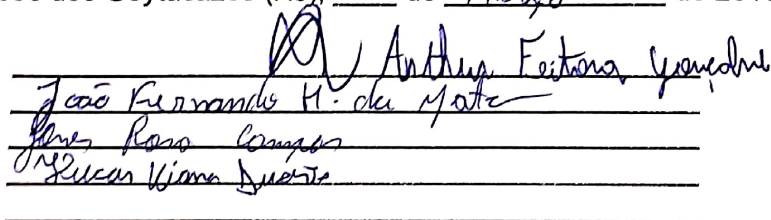 Goytacazes (RJ), ____ de Março de 201
Arthur Feitosa Gonçalves
João Fernando H. da Mata
Rosa Campos
Lucas Viana Duarte